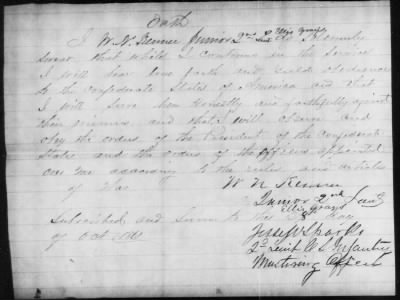 Oath
I W. N. Kenner Junior 2nd Lieut Ellis Grays do solemnly
swear that while I continue in the service
I will bear true faith and yield obedience
to the Confederate States of America and that
I will serve them honestly and faithfully against
their enemies and that I will observe and
obey the orders of the President of the Confederate
States and the orders of the officers appointed
over me according to the rules and articles
of War
W N Kenner
Junior 2nd Lieut
Ellis Grays
Subscribed and sworn to this day
of Oct
Joseph Sparks
2d Lieut C S Infantry
Mustering Officer